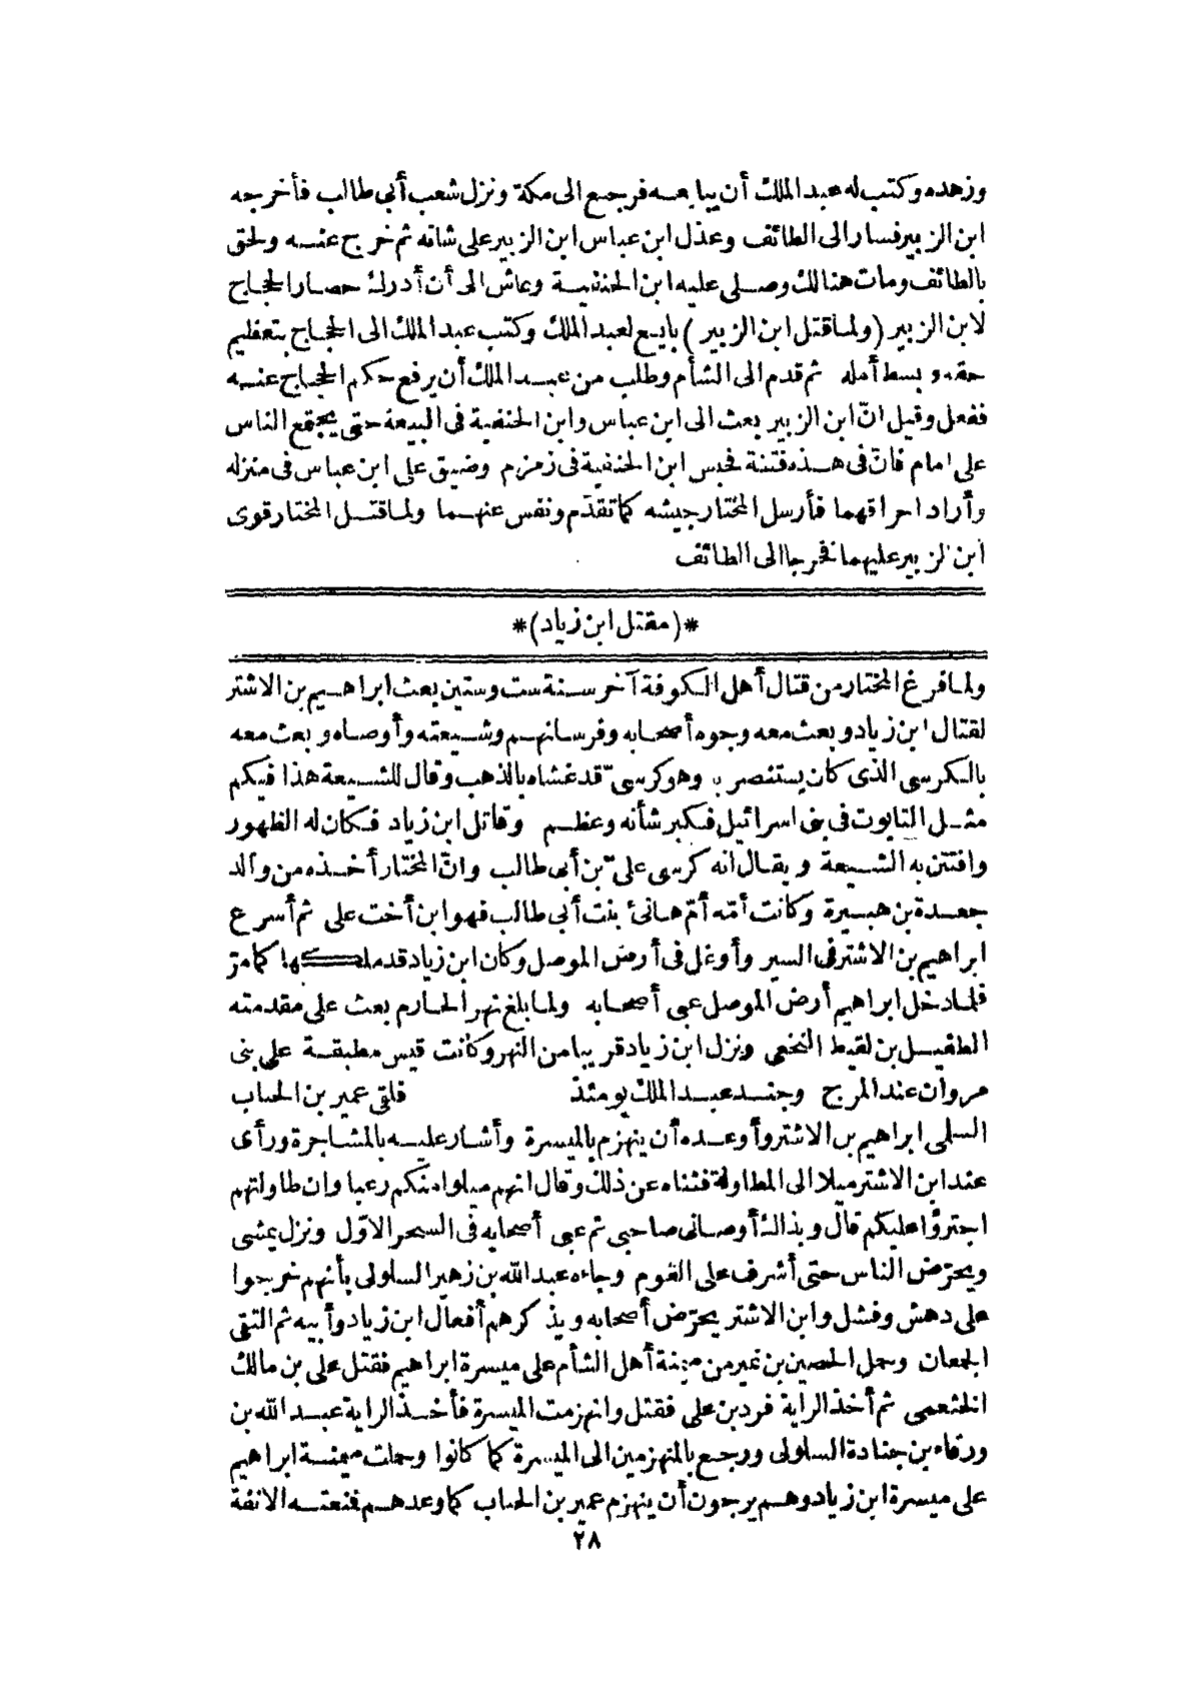 وزهده وكتب له عبد الملك أن يبايعه فرجع الى مكة ونزل شعب أبى طالب فأخرجه
ابن الزبير فسار الى الطائف وعذل ابن عباس ابن الزبير على شأنه ثم خرج عنه ولحق
بالطائف ومات هنالك وصلى عليه ابن الحنفية وعاش الى أن أدرك حصار الحجاج
لابن الزبير (ولما قتل ابن الزبير) بايع لعبد الملك وكتب عبد الملك الى الحجاج بتعظيم
حقه وبسط أمله ثم قدم الى الشأم وطلب من عبد الملك أن يرفع حكم الحجاج عنه
ففعل وقيل انّ ابن الزبير بعث الى ابن عباس وابن الحنفية فى البيعة حتى يجتمع الناس
على امام فانّ فى هذه فتنة فحبس ابن الحنفية فى زمزم وضيق على ابن عباس فى منزله
وأراد احراقهما فأرسل المختار جيشه كما تقدّم ونفس عنهما ولما قتل المختار قوى
ابن الزبير عليهما فخرجا الى الطائف
*(مقتل ابن زياد)*
ولما فرغ المختار من قتال أهل الكوفة آخر سنة ست وستين بعث ابراهيم بن الاشتر
لقتال ابن زياد وبعث معه وجوه أصحابه وفرسانهم وشيعته وأوصاه وبعث معه
بالكرسى الذى كان يستنصر به وهو كرسىّ قد غشاه بالذهب وقال للشيعة هذا فيكم
مثل التابوت فى بنى اسرائيل فكبر شأنه وعظم وقاتل ابن زياد فكان له الظهور
وافتتن به الشيعة ويقال انه كرسى علىّ بن أبى طالب وانّ المختار أخذه من والد
جعدة بن هبيرة وكانت أمّه أمّ هانئ بنت أبى طالب فهو ابن أخت على ثم أسرع
ابراهيم بن الاشتر فى السير وأوغل فى أرض الموصل وكان ابن زياد قد ملكها كما مرّ
فلما دخل ابراهيم أرض الموصل عبى أصحابه ولما بلغ نهر الحارم بعث على مقدمته
الطفيل بن لقيط النخعى ونزل ابن زياد قريبا من النهر وكانت قيس مطبقة على بنى
مروان عند المرج وجند عبد الملك يومئذ فلقى عمير بن الحباب
السلمى ابراهيم بن الاشتر وأوعده أن ينهزم بالميسرة وأشار عليه بالمشاجرة ورأى
عند ابن الاشتر ميلا الى المطاولة فثناه عن ذلك وقال انهم ميلوا منكم رعبا وان طاولتهم
اجترؤا عليكم قال وبذلك أوصانى صاحبى ثم عبى أصحابه فى السحر الاوّل ونزل يمشى
ويحرّض الناس حتى أشرف على القوم وجاءه عبد الله بن زهير السلولى بأنهم خرجوا
على دهش وفشل وابن الاشتر يحرّض أصحابه ويذكرهم أفعال ابن زياد وأبيه ثم التقى
الجمعان وحمل الحصين بن نمير من ميمنة أهل الشأم على ميسرة ابراهيم فقتل على بن مالك
الخثعمى ثم أخذ الراية فرد بن على فقتل وانهزمت الميسرة فأخذ الراية عبد الله بن
ورقاء بن جنادة السلولى ورجع بالمنهزمين الى الميسرة كما كانوا وحملت ميمنة ابراهيم
على ميسرة ابن زياد وهم يرجون أن ينهزم عمير بن الحباب كما وعدهم فمنعته الانفة
٢٨